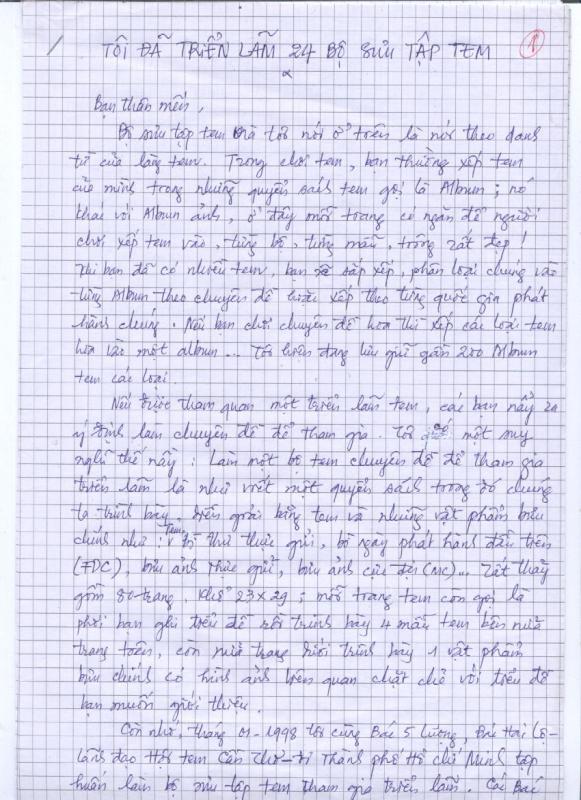 TÔI ĐÃ TRIỂN LÃM 24 BỘ SƯU TẬP TEM
1
Bạn thân mến,
Bộ sưu tập tem mà tôi nói ở trên là nói theo danh
từ của làng tem. Trong chơi tem, bạn thường xếp tem
của mình trong những quyển sách tem gọi là Album; nó
khác với Album ảnh, ở đây mỗi trang có ngăn để người
chơi xếp tem vào, từng bộ, từng mẫu, trông rất đẹp!
Khi bạn đã có nhiều tem, bạn sẽ sắp xếp, phân loại chúng vào
từng Album theo chuyên đề hoặc xếp theo từng quốc gia phát
hành chúng. Nếu bạn chơi chuyên đề hoa thì xếp các loại tem
hoa vào một album... Tôi hiện đang lưu giữ gần 200 Album
tem các loại.
Nếu được tham quan một triển lãm tem, các bạn nảy ra
ý định làm chuyên đề để tham gia. Tôi có một suy
nghĩ thế này: Làm một bộ tem chuyên đề để tham gia
triển lãm là như viết một quyển sách trong đó chúng
ta trình bày, diễn giải bằng tem và những vật phẩm bưu
chính như: Tem, bì thư thực gửi, bì ngày phát hành đầu tiên
(FDC), bưu ảnh thực gửi, bưu ảnh cực đại (MC)... Tất thảy
gồm 80 trang. Khổ 23x29; mỗi trang tem còn gọi là
phơi bạn ghi tiểu đề rồi trình bày 4 mẫu tem bên nửa
trang trên, còn nửa trang dưới trình bày 1 vật phẩm
bưu chính có hình ảnh liên quan chặt chẽ với tiểu đề
bạn muốn giới thiệu.
Còn nhớ, tháng 01-1998 tôi cùng Bác 5 Lương, Bác Hai Lộ-
lãnh đạo Hội tem Cần Thơ-đi Thành phố Hồ Chí Minh tập
huấn làm bộ sưu tập tem tham gia triển lãm. Các Bác